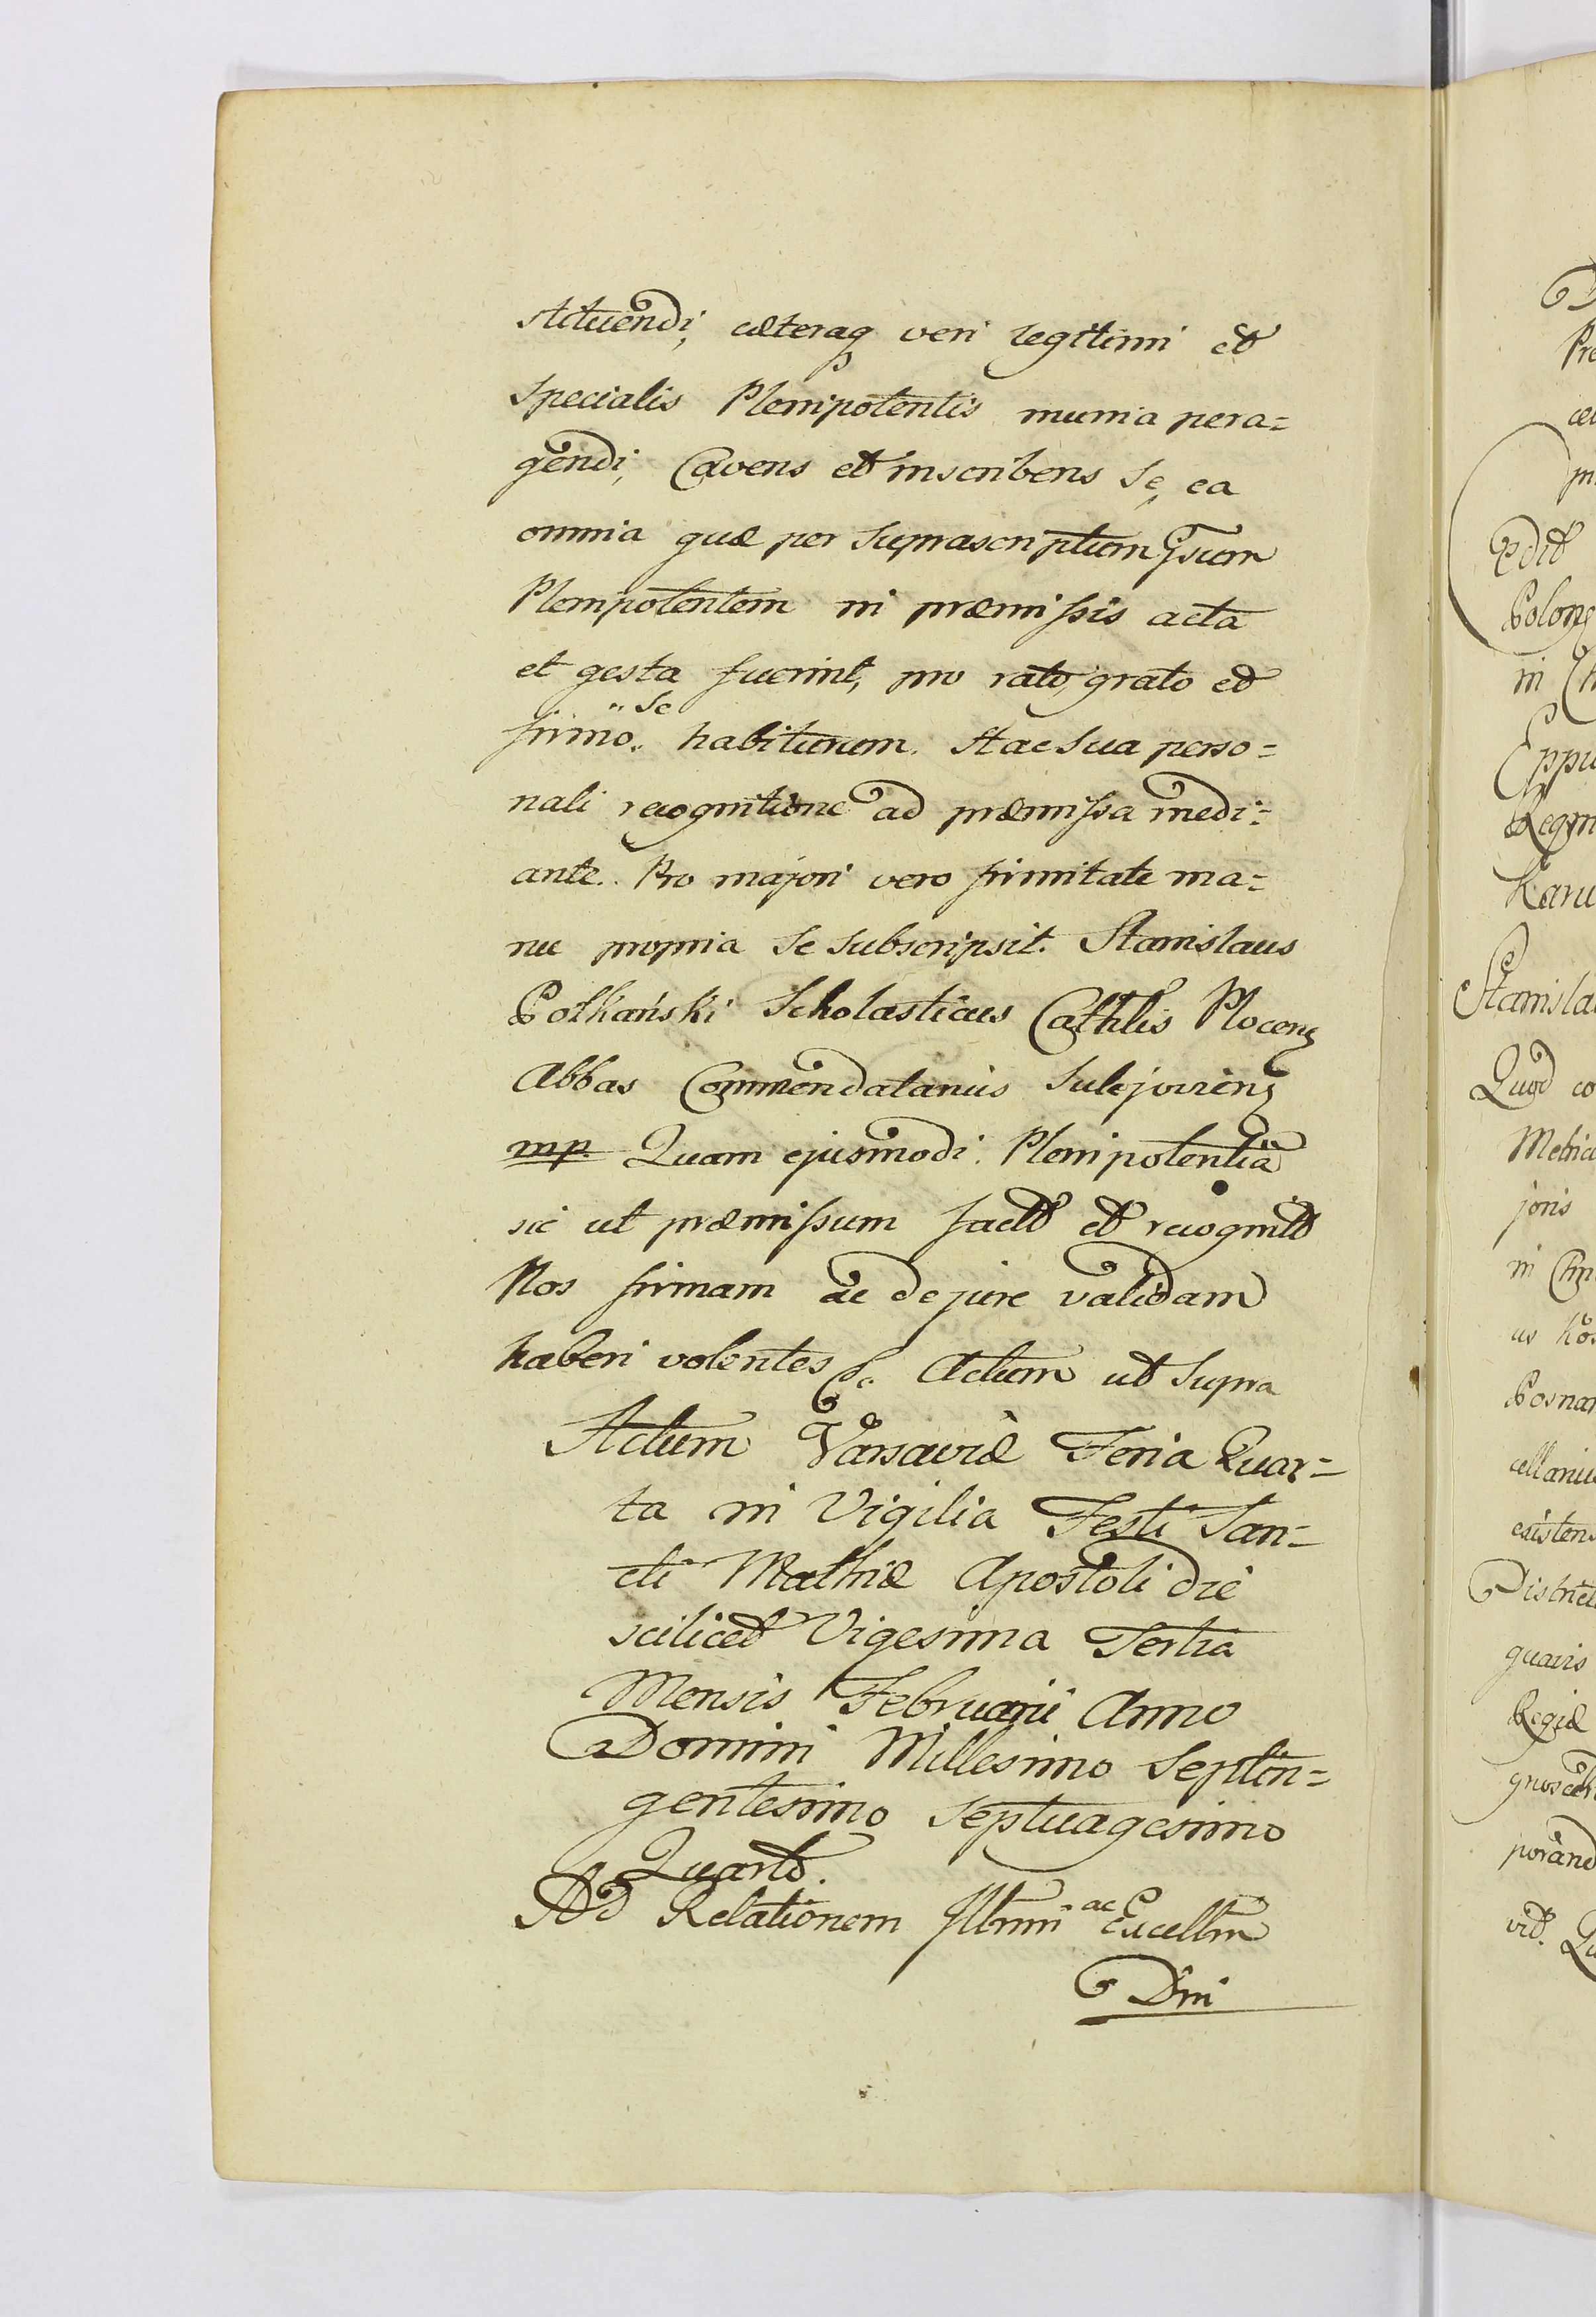 stituendi, cæteraq veri legitimi et
Specialis Plenipotentis munia pera=
gendi, Cavens et inscribens Se, ea
omnia quæ per Suprascriptum Gsum
Plenipotentem in præmissis acta
et gesta fuerint, pro rato, grato et
Se
firmo habiturum. Hac Sua perso=
nali recognitione ad præmissa medi=
ante. Pro majori vero firmitate ma=
nu propria Se Subscripsit. Stanislaus
Potkański Scholasticus Cathlis Plocens
Abbas Commendatarius Sulejoviens
mp. Quam ejusmodi Plenipotentiã
sic ut præmissum fact et recognit
Nos firmam ac de jure validam
haberi volentes Actum ut Supra
Actum Varsaviæ Feria Quar=
ta in Vigilia Festi San=
cti Mathiæ Apostoli die
scilicet Vigesima Tertia
Mensis Februarii Anno
Domini Millesimo Septin=
gentesimo Septuagesimo
Quarto.
Ad Relationem Illmi ac Excellm
Dni
Edit
Polon
in
Stanisla
Quod co
Metrica
joris
in
Posnan
cellariu
existens
District
quavis
Regiæ